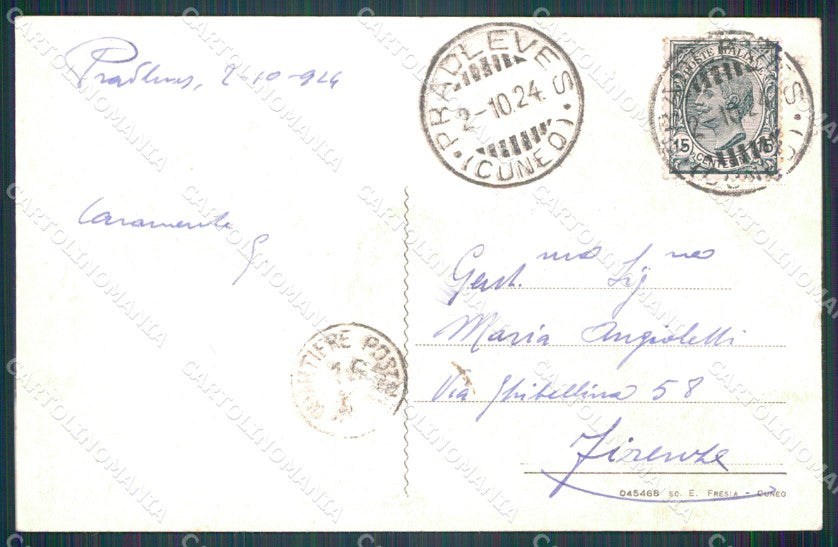 Pradleves, 2-10-924
PRADLEVES
2-10.24.
(CUNEO)
POSTE ITALIANE
15 CENTESIMI 15
Caramente
G
Gent.mo Sig.na
Maria Angioletti
Via Ghibellina 58
Firenze
PORTALETTERE POSTA
045468 SO. E. FRESIA - CUNEO
CARTOLINOMANIA